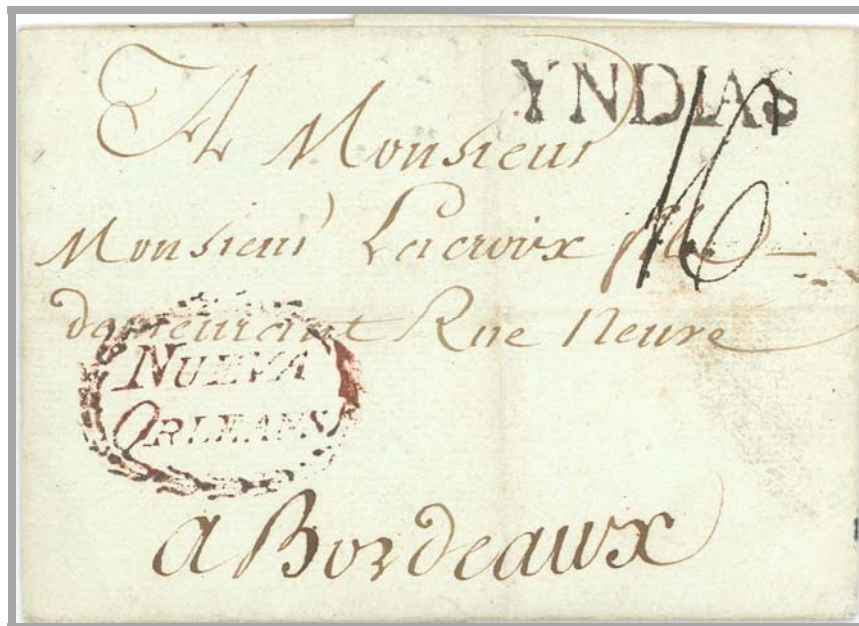 YNDIAS
A Monsieur
16
Monsieur Lacroix fils
demeurant Rue Neuve
NUEVA
ORLEANS
a Bordeaux